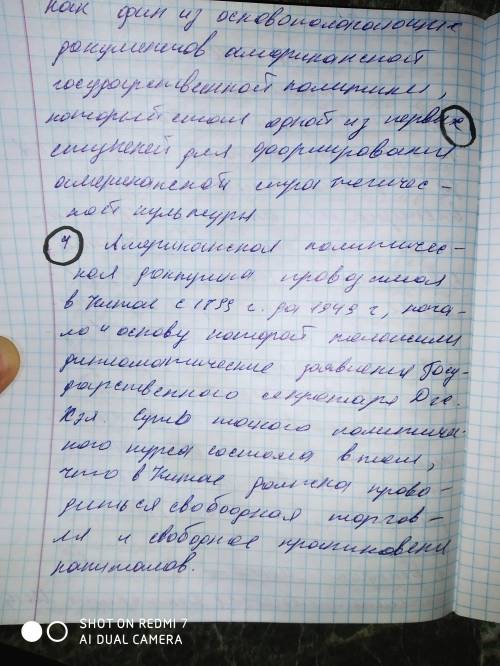 как один из основополагающих
документов американской
государственной политики,
который стал одной из первых
ступеней для формирования
американской стратегичес-
кой культуры
4 Американская политичес-
кая доктрина проводимая
в Китае с 1899 г. до 1949 г, нача-
ло и основу которой положили
дипломатические заявления Госу-
дарственного секретаря Джо.
Хэя. Суть такого политичес-
кого курса состояла в том,
что в Китае должна прово-
диться свободная торгов-
ля и свободное проникновение
капиталов.
SHOT ON REDMI 7
AI DUAL CAMERA